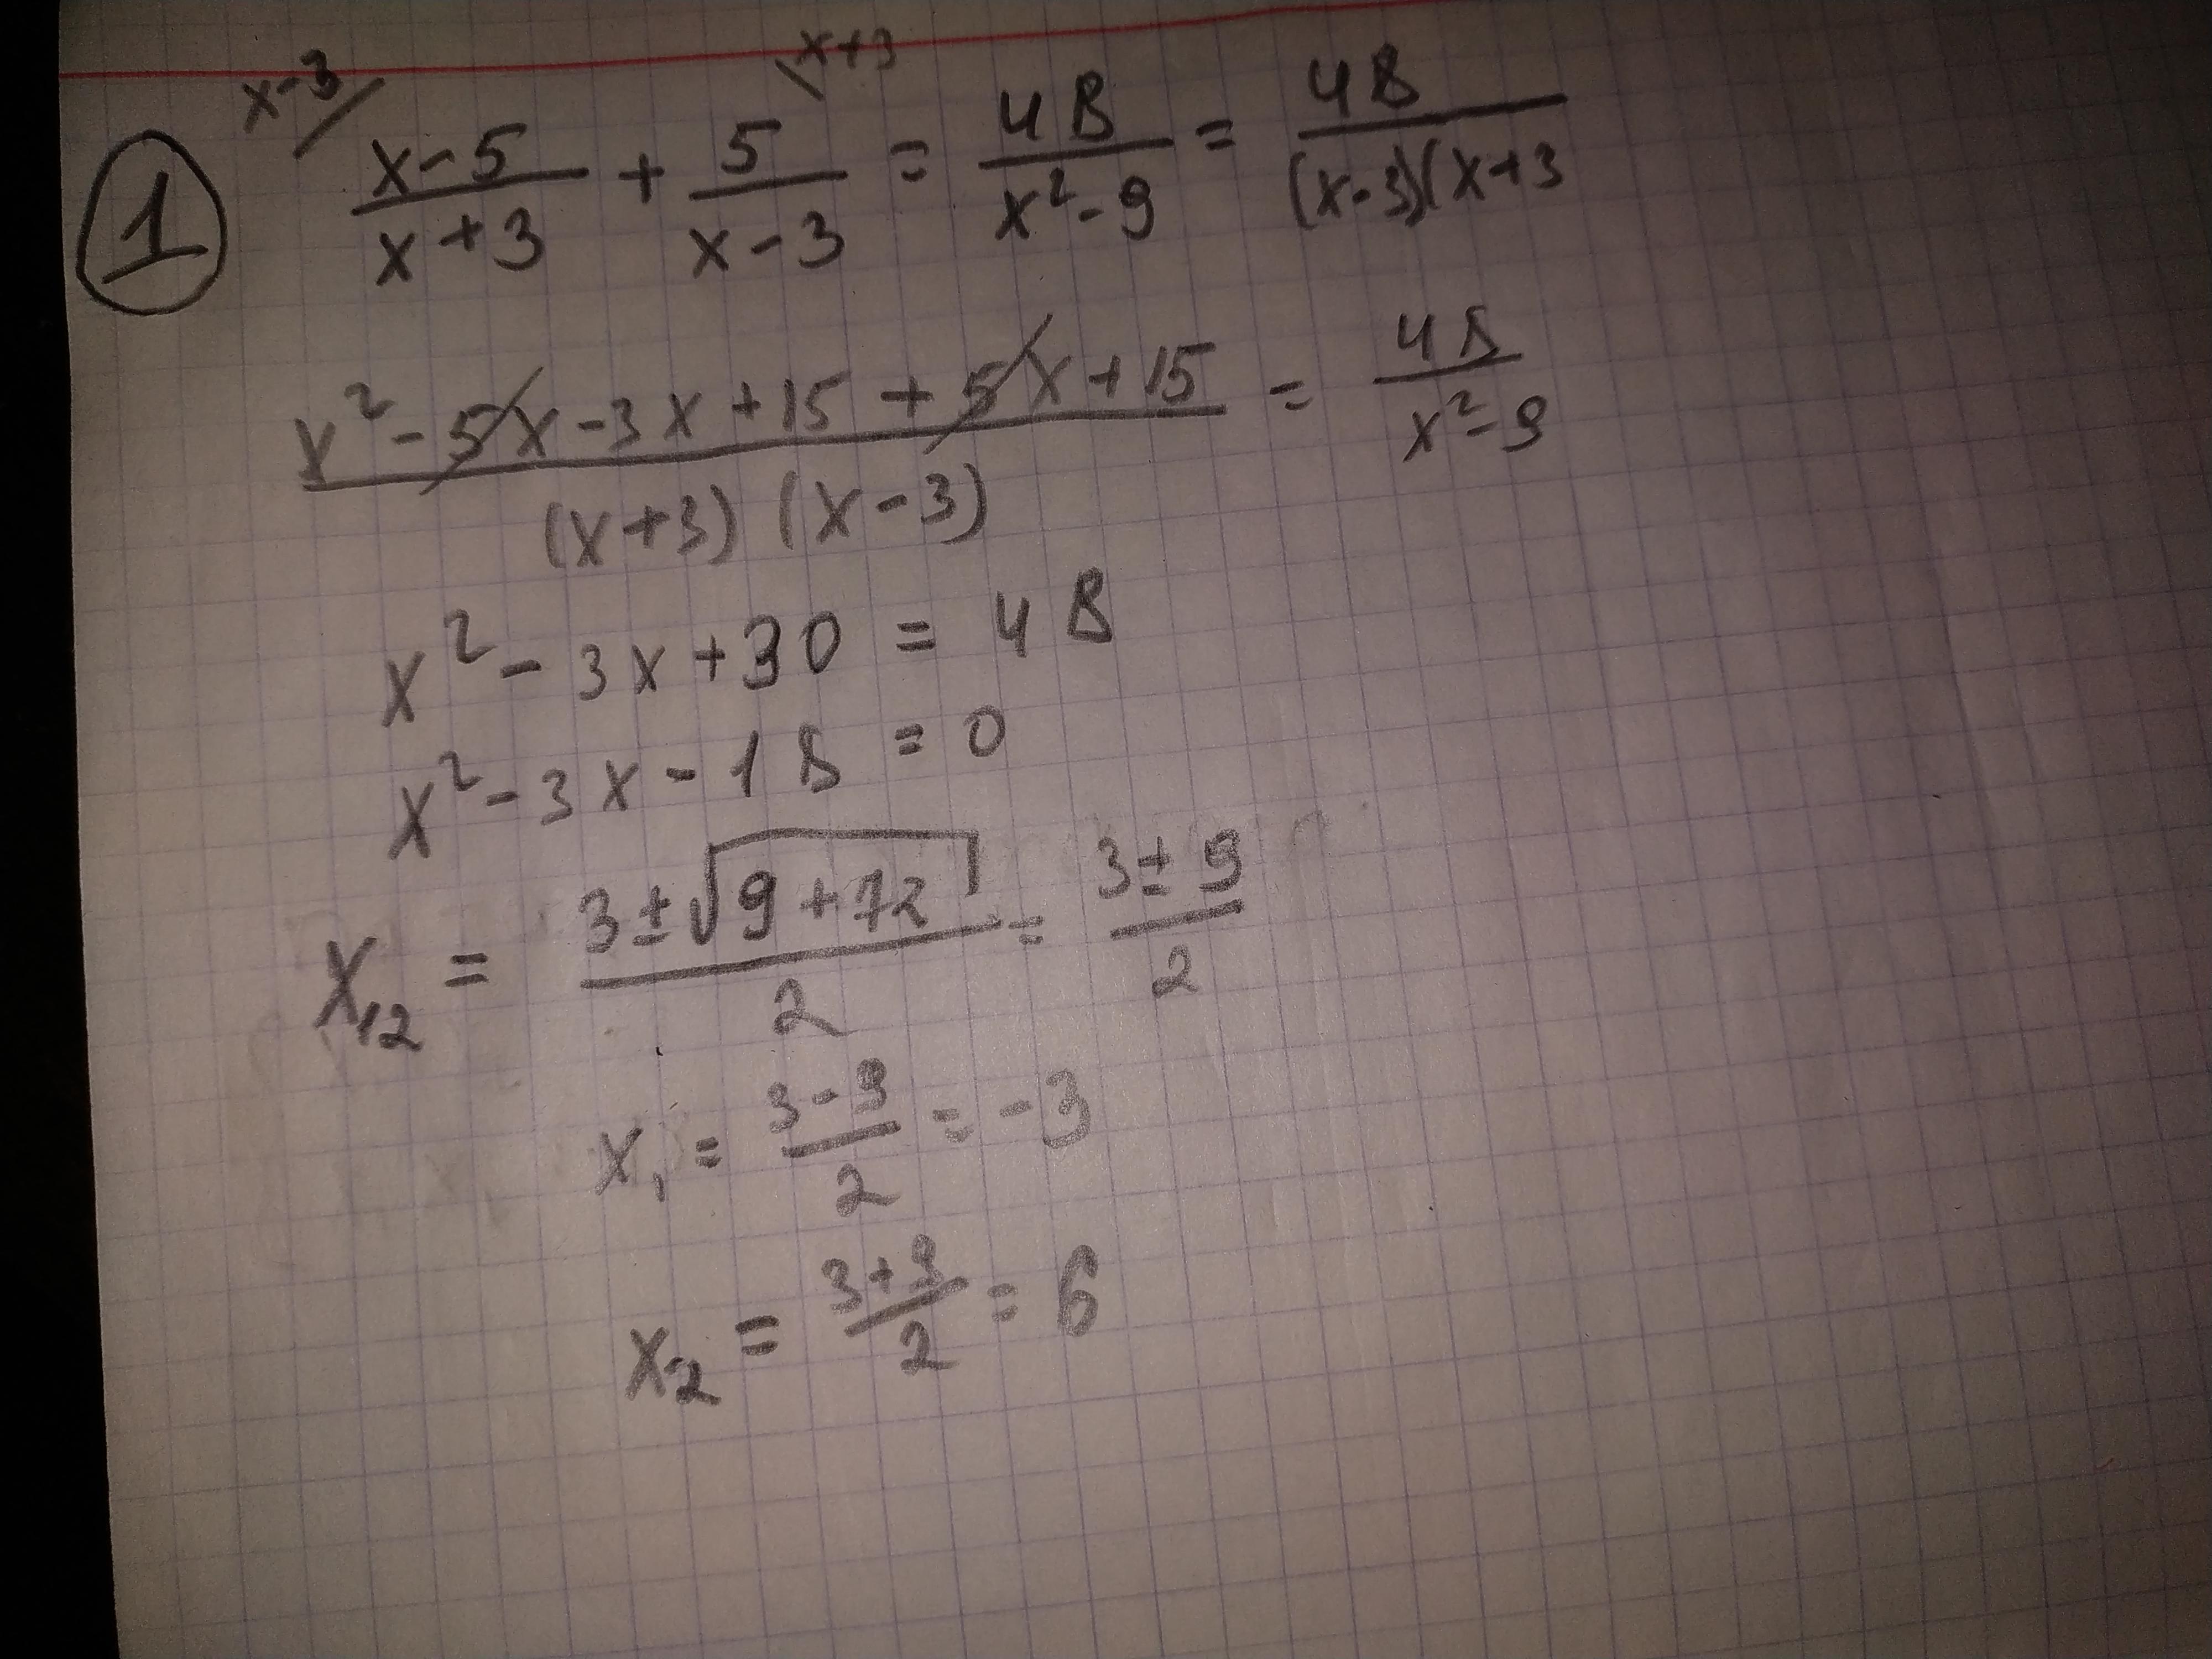 x-3/ \x+3
① x-5/x+3 + 5/x-3 = 48/x²-9 = 48/(x-3)(x+3
x²-5x-3x+15+5x+15/(x+3)(x-3) = 48/x²-9
x²-3x+30 = 48
x²-3x-18 = 0
x₁₂ = 3±√9+72/2 = 3±9/2
x₁ = 3-9/2 = -3
x₂ = 3+9/2 = 6